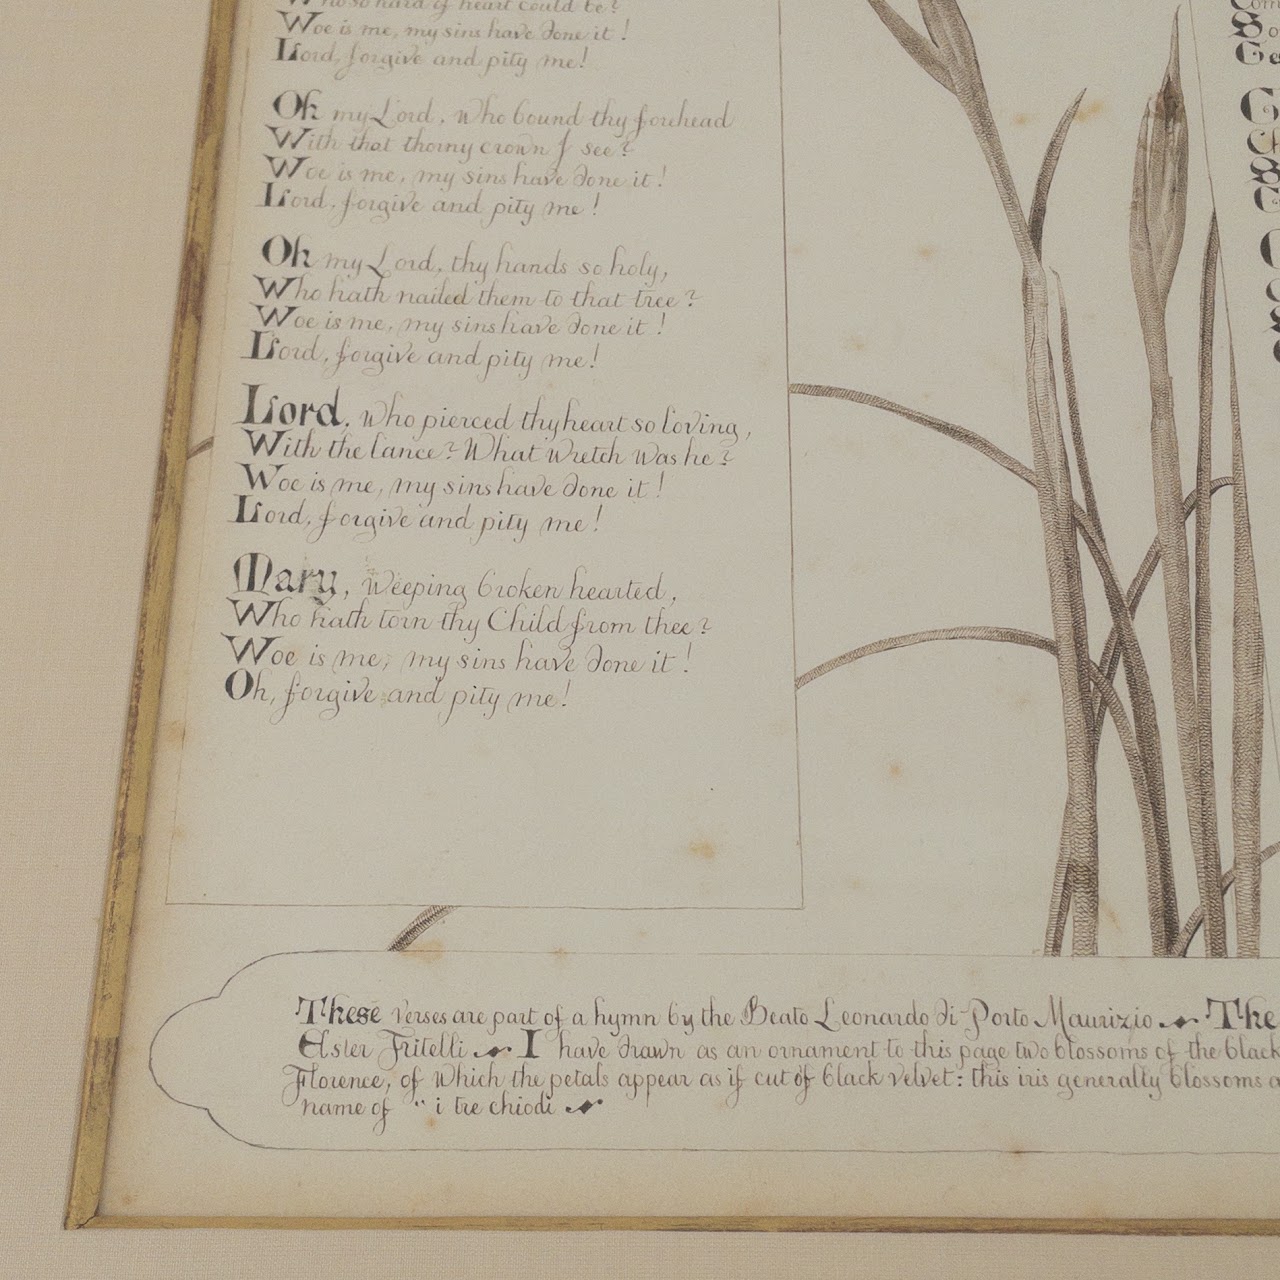 Who so hard of heart could be?
Woe is me, my sins have done it!
Lord, forgive and pity me!
Oh my Lord, who bound thy forehead
With that thorny crown I see?
Woe is me, my sins have done it!
Lord, forgive and pity me!
Oh my Lord, thy hands so holy,
Who hath nailed them to that tree?
Woe is me, my sins have done it!
Lord, forgive and pity me!
Lord, who pierced thy heart so loving,
With the lance? What wretch was he?
Woe is me, my sins have done it!
Lord, forgive and pity me!
Mary, weeping broken hearted,
Who hath torn thy Child from thee?
Woe is me, my sins have done it!
Oh, forgive and pity me!
These verses are part of a hymn by the Beato Leonardo di Porto Maurizio The
Ester Fritelli I have drawn as an ornament to this page two blossoms of the black
Florence, of which the petals appear as if cut of black velvet: this iris generally blossoms
name of " i tre chiodi